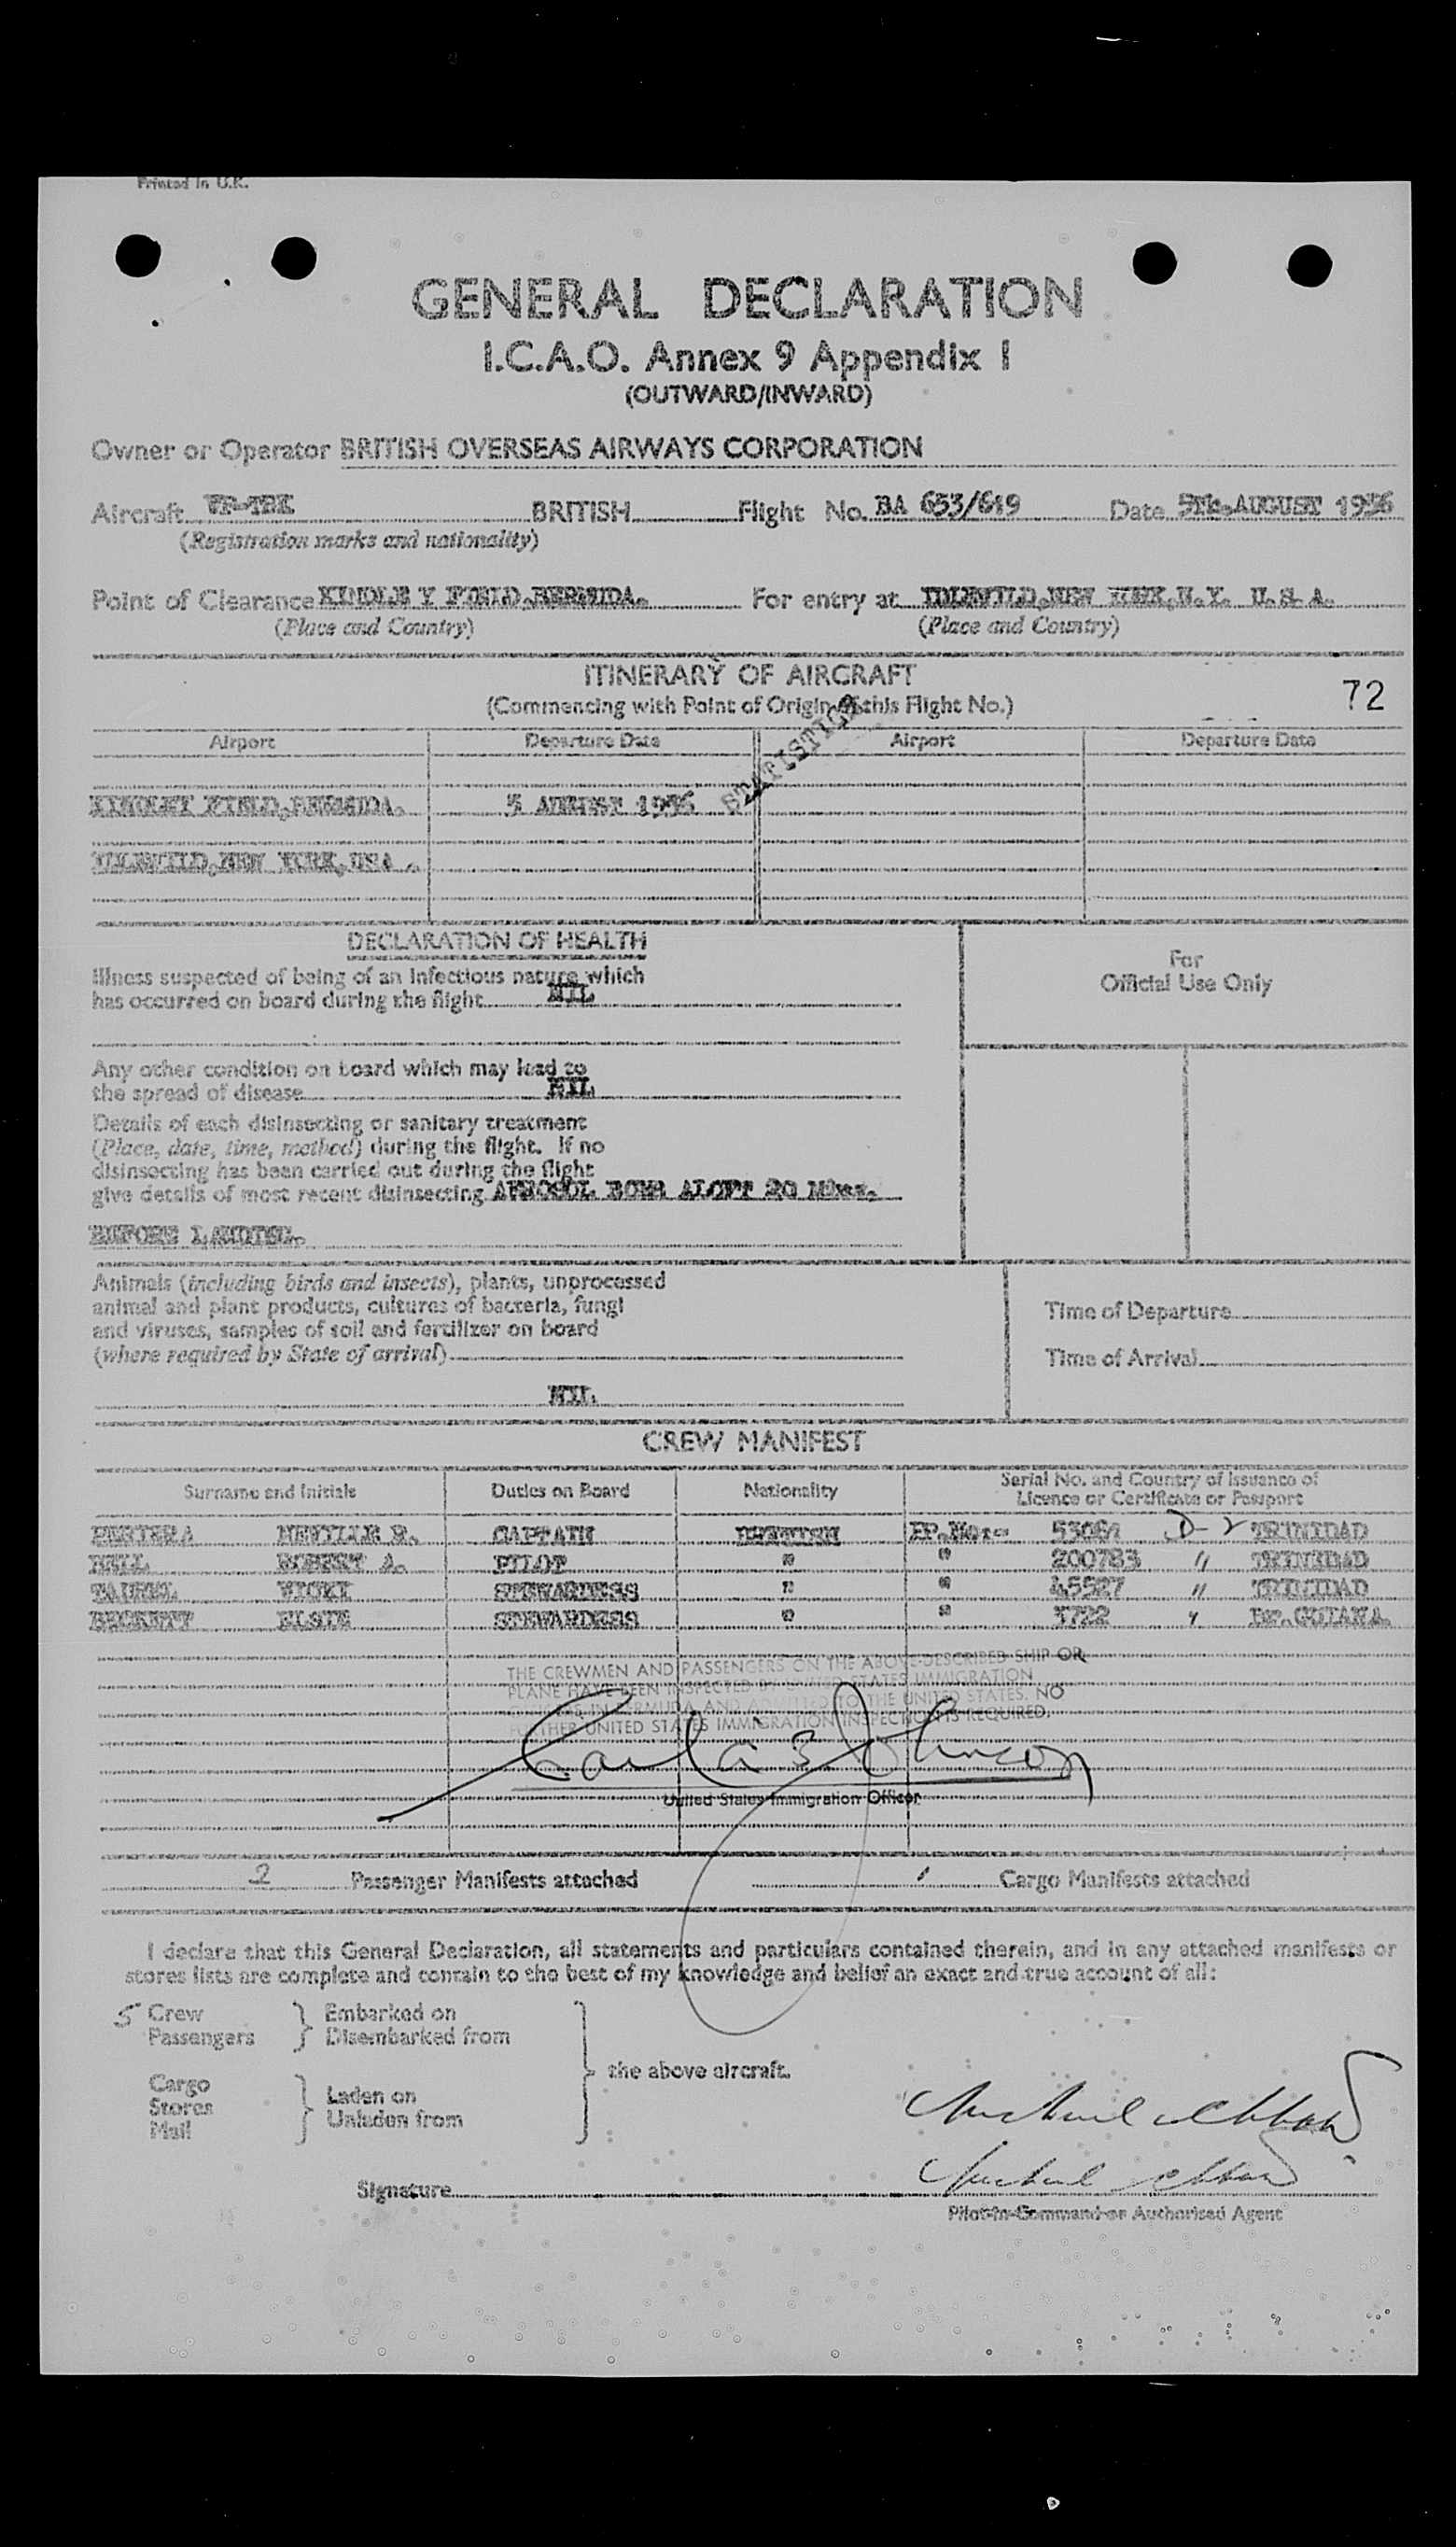 Printed in U.K.
GENERAL DECLARATION
I.C.A.O. Annex 9 Appendix I
(OUTWARD/INWARD)
Owner or Operator BRITISH OVERSEAS AIRWAYS CORPORATION
Aircraft BRITISH Flight No. BA 653/649 Date 5Th. AUGUST 1956
(Registration marks and nationality)
Point of Clearance KINDLE Y FIELD, BERMUDA. For entry at IDLEWILD, NEW YORK, N.Y. U.S.A.
(Place and Country) (Place and Country)
ITINERARY OF AIRCRAFT
(Commencing with Point of Origin of this Flight No.) 72
STATISTICS
Airport Departure Date Airport Departure Date
KINDLEY FIELD, BERMUDA. 5 AUGUST 1956
IDLEWILD, NEW YORK, USA.
DECLARATION OF HEALTH
For
Official Use Only
Illness suspected of being of an infectious nature which
has occurred on board during the flight NIL
Any other condition on board which may lead to
the spread of disease NIL
Details of each disinsecting or sanitary treatment
(Place, date, time, method) during the flight. If no
disinsecting has been carried out during the flight
give details of most recent disinsecting AEROSOL BOMB ALOFT 20 Mins.
BEFORE LANDING.
Animals (including birds and insects), plants, unprocessed
animal and plant products, cultures of bacteria, fungi
and viruses, samples of soil and fertilizer on board
(where required by State of arrival)
NIL.
Time of Departure
Time of Arrival
CREW MANIFEST
Surname and Initials Duties on Board Nationality Serial No. and Country of Issuance of
Licence or Certificate or Passport
NEVILLE CAPTAIN BRITISH PP.No:- D-2 TRINIDAD
BELL ROBERT A. PILOT " " 200783 " TRINIDAD
VICKI STEWARDESS " " 45527 " TRINIDAD
BECKETT ELSIE STEWARDESS " " " Br. GUIANA.
THE CREWMEN AND PASSENGERS ON THE ABOVE-DESCRIBED SHIP OR
PLANE HAVE BEEN INSPECTED BY UNITED STATES IMMIGRATION
OFFICERS IN BERMUDA AND ADMITTED TO THE UNITED STATES. NO
FURTHER UNITED STATES IMMIGRATION INSPECTION IS REQUIRED.
Johnson
United States Immigration Officer
2 Passenger Manifests attached 1 Cargo Manifests attached
I declare that this General Declaration, all statements and particulars contained therein, and in any attached manifests or
stores lists are complete and contain to the best of my knowledge and belief an exact and true account of all:
5 Crew
Passengers
Embarked on
Disembarked from
Cargo
Stores
Mail
Laden on
Unladen from
the above aircraft.
Michael
Michael
Signature
Pilot-in-Command or Authorised Agent